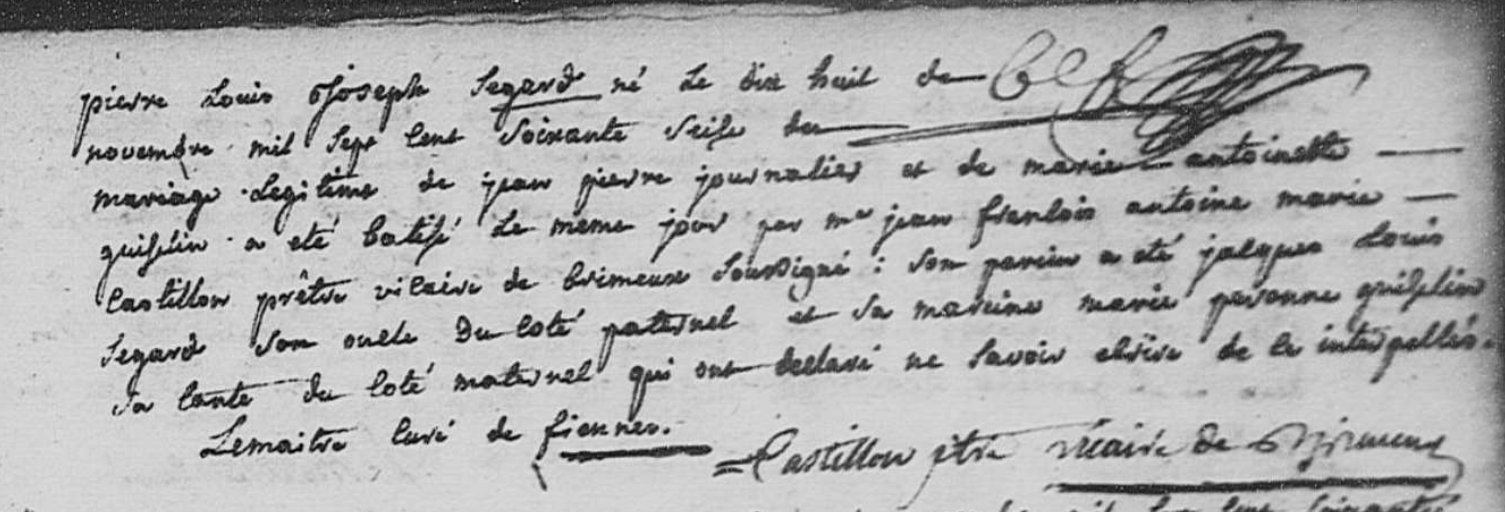 pierre Louis Joseph Segard né Le dix huit de
novembre mil sept cens soixante seise du
mariage Legitime de jean pierre journalier et de marie antoinette
guilplin a eté batisé Le meme jour par mr jean francois antoine marie
Castillon prêtre vicaire de brimeux soussigné : son parein a eté jacques Louis
Segard son oncle Du coté paternel et sa mareine marie peronne guilplin
sa tante du coté maternel qui ont declaré ne savoir ecrire de ce interpellés.
Lemaitre curé de fiennes.
= Castillon ptre vicaire de Brimeux